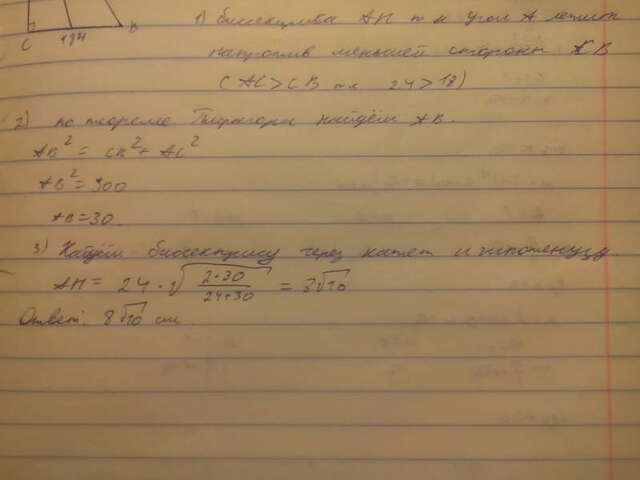 C 184 B
1) биссектриса AH т к угол A лежит
напротив меньшей стороны CB
(AC>CB т.к 24>18)
2) по теореме Пифагора найдём AB.
AB² = CB² + AC²
AB² = 300
AB = 30.
3) Найдём биссектрису через катет и гипотенузу.
AH = 24 · √(2·30 / 24+30) = 3√10
Ответ: 8√10 см